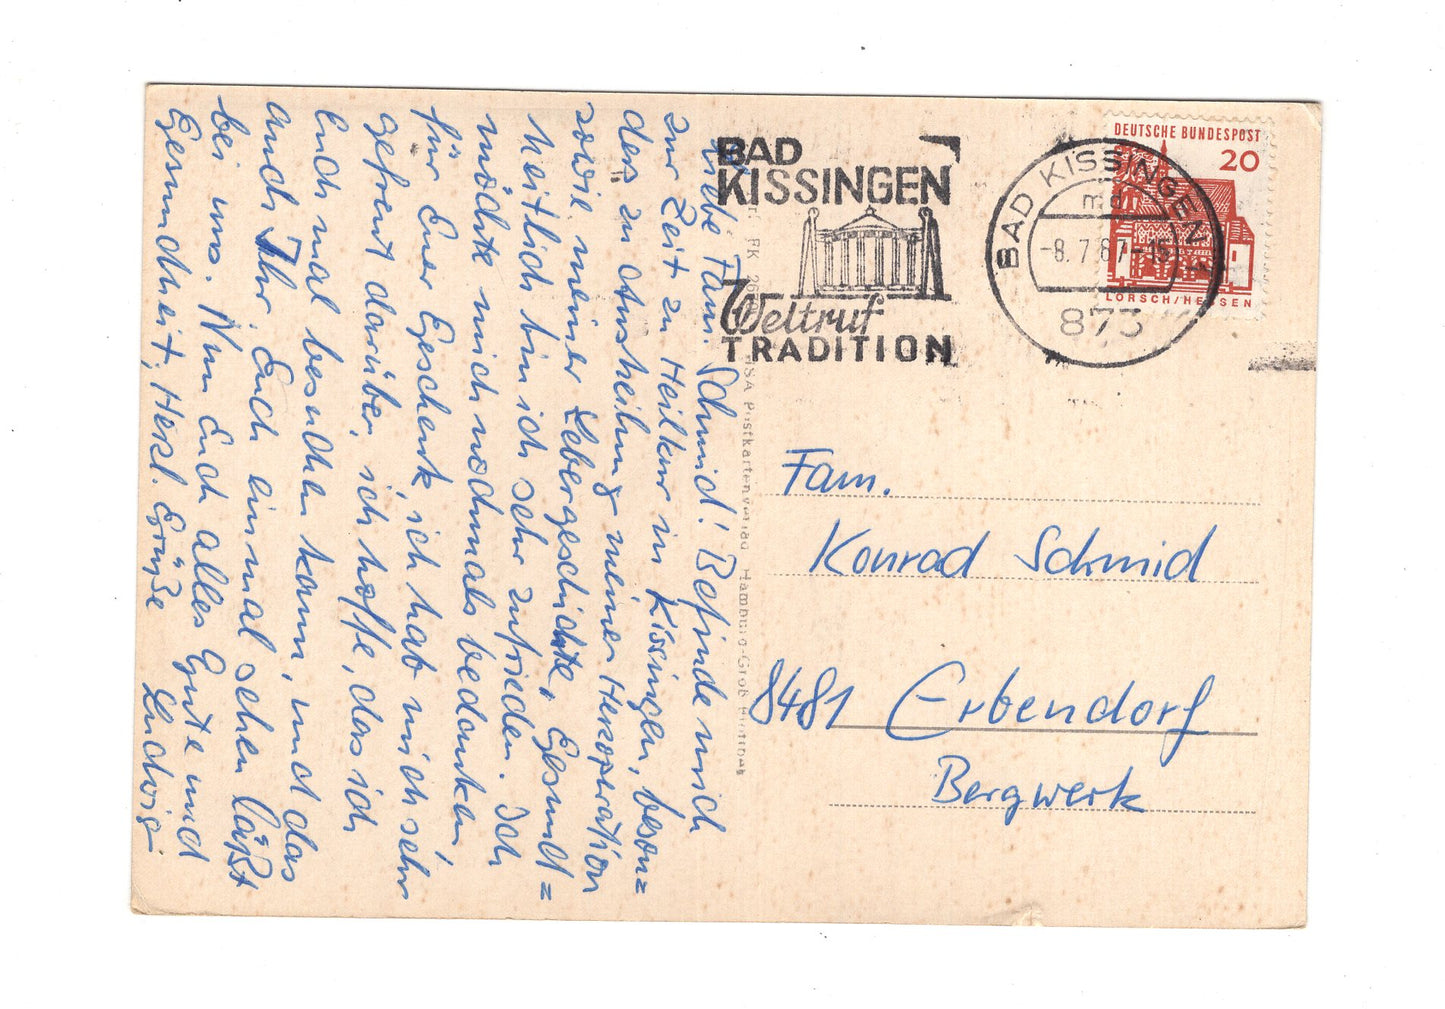 Liebe Fam. Schmid! Befinde mich
zur Zeit zu Heilkur in Kissingen, beson=
ders zu Ausheilung meiner Herzoperation
sowie meiner Lebergeschichte, Gesund=
heitlich bin ich sehr zufrieden. Ich
möchte mich nochmals bedanken
für Euer Geschenk, ich hab mich sehr
gefreut darüber, ich hoffe, das ich
Euch mal besuchen kann, und das
auch Ihr, Euch einmal sehen läßt
bei uns. Nun Euch alles Gute und
Gesundheit, Herzl. Grüße Ludwig
BAD
KISSINGEN
Weltruf
TRADITION
BAD KISSINGEN
-8.7.67-15
873
DEUTSCHE BUNDESPOST
20
LORSCH/HESSEN
PK 26
Postkartenverlag Hamburg-Groß Flottbek
Fam.
Konrad Schmid
8481 Erbendorf
Bergwerk